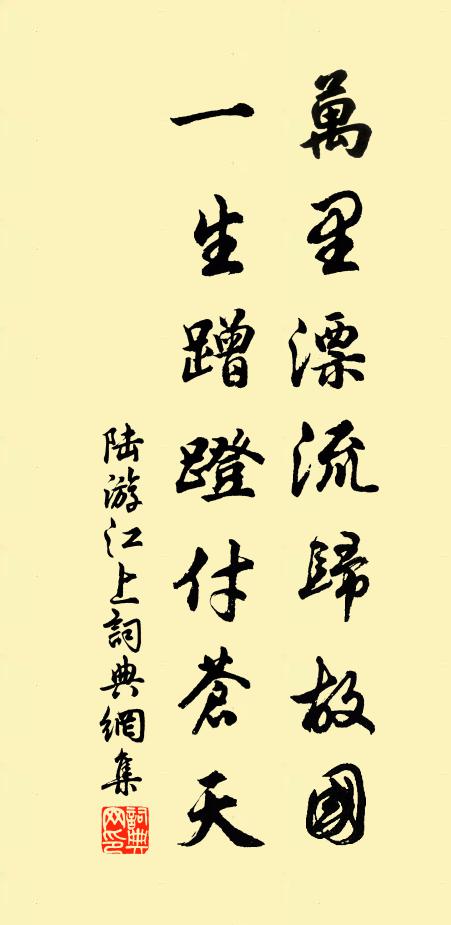 萬里漂流歸故國
一生蹭蹬付蒼天
陆游江上詞典網集
詞典网印